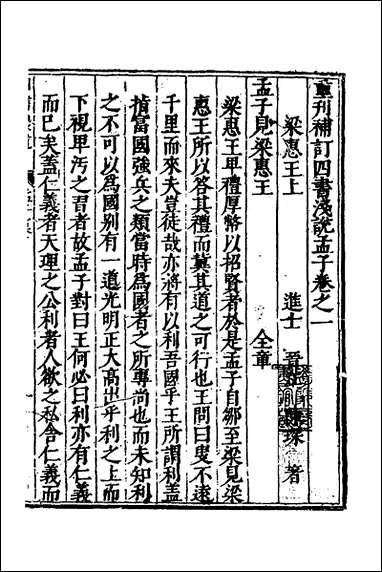 重刊補訂四書淺說孟子卷之一
梁惠王上　進士　晉江　琛　著
孟子見梁惠王　全章
梁惠王卑禮厚幣以招賢者於是孟子自鄒至梁見梁
惠王所以答其禮而冀其道之可行也王問曰叟不遠
千里而來夫豈徒哉亦將有以利吾國乎王所謂利蓋
指富國強兵之類當時為國者之所專尚也而未知利
之不可以為國別有一道光明正大高出乎利之上而
下視卑污之習者故孟子對曰王何必曰利亦有仁義
而已矣蓋仁義者天理之公利者人欲之私舍仁義而